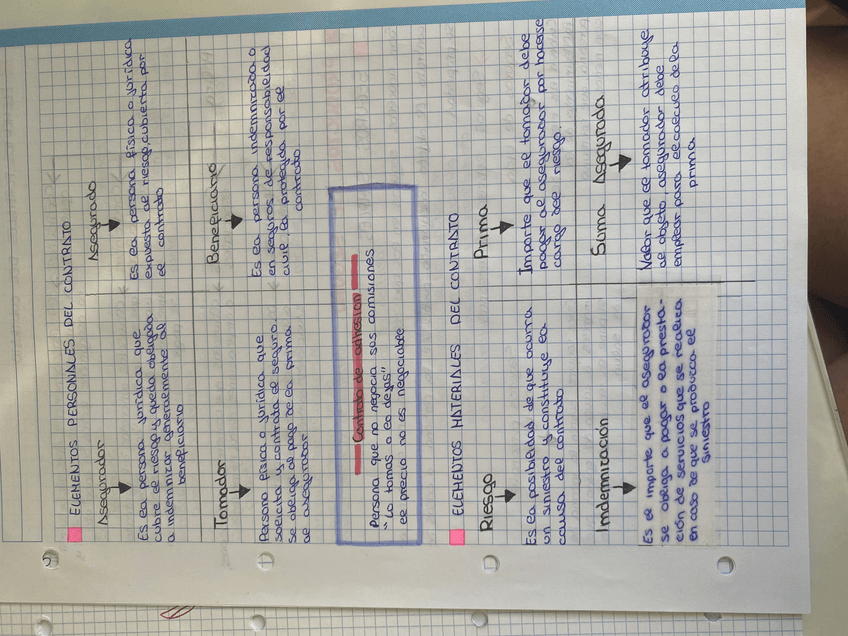 5
ELEMENTOS PERSONALES DEL CONTRATO
Asegurador
Es la persona jurídica que
cubre el riesgo y queda obligada
a indemnizar generalmente al
beneficiario
Asegurado
Es la persona física o jurídica
expuesta al riesgo, cubierta por
el contrato
Tomador
Persona física o jurídica que
solicita y contrata el seguro.
Se obliga al pago de la prima
al asegurador
Beneficiario
Es la persona indemnizada o
en seguros de responsabilidad
civil, la protegida por el
contrato
Contrato de adhesion
Persona que no negocia sus comisiones
"Lo tomas o la dejas"
el precio no es negociable
ELEMENTOS MATERIALES DEL CONTRATO
Riesgo
Es la posibilidad de que ocurra
un siniestro y constituye la
causa del contrato
Prima
Importe que el tomador debe
pagar al asegurador por hacerse
cargo del riesgo
Indemnización
Es el importe que el asegurador
se obliga a pagar o la presta-
ción de servicios que se realiza
en caso de que se produzca el
siniestro
Suma Asegurada
Valor que el tomador atribuye
al objeto asegurador debe
emplear para el calculo de la
prima